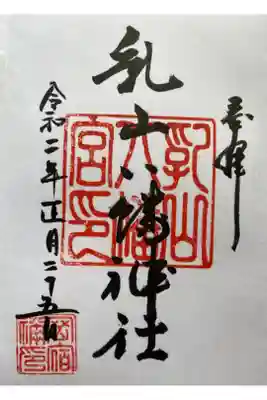 奉拝
乳山八幡神社
令和二年正月二十五日
乳山
八幡
宮印